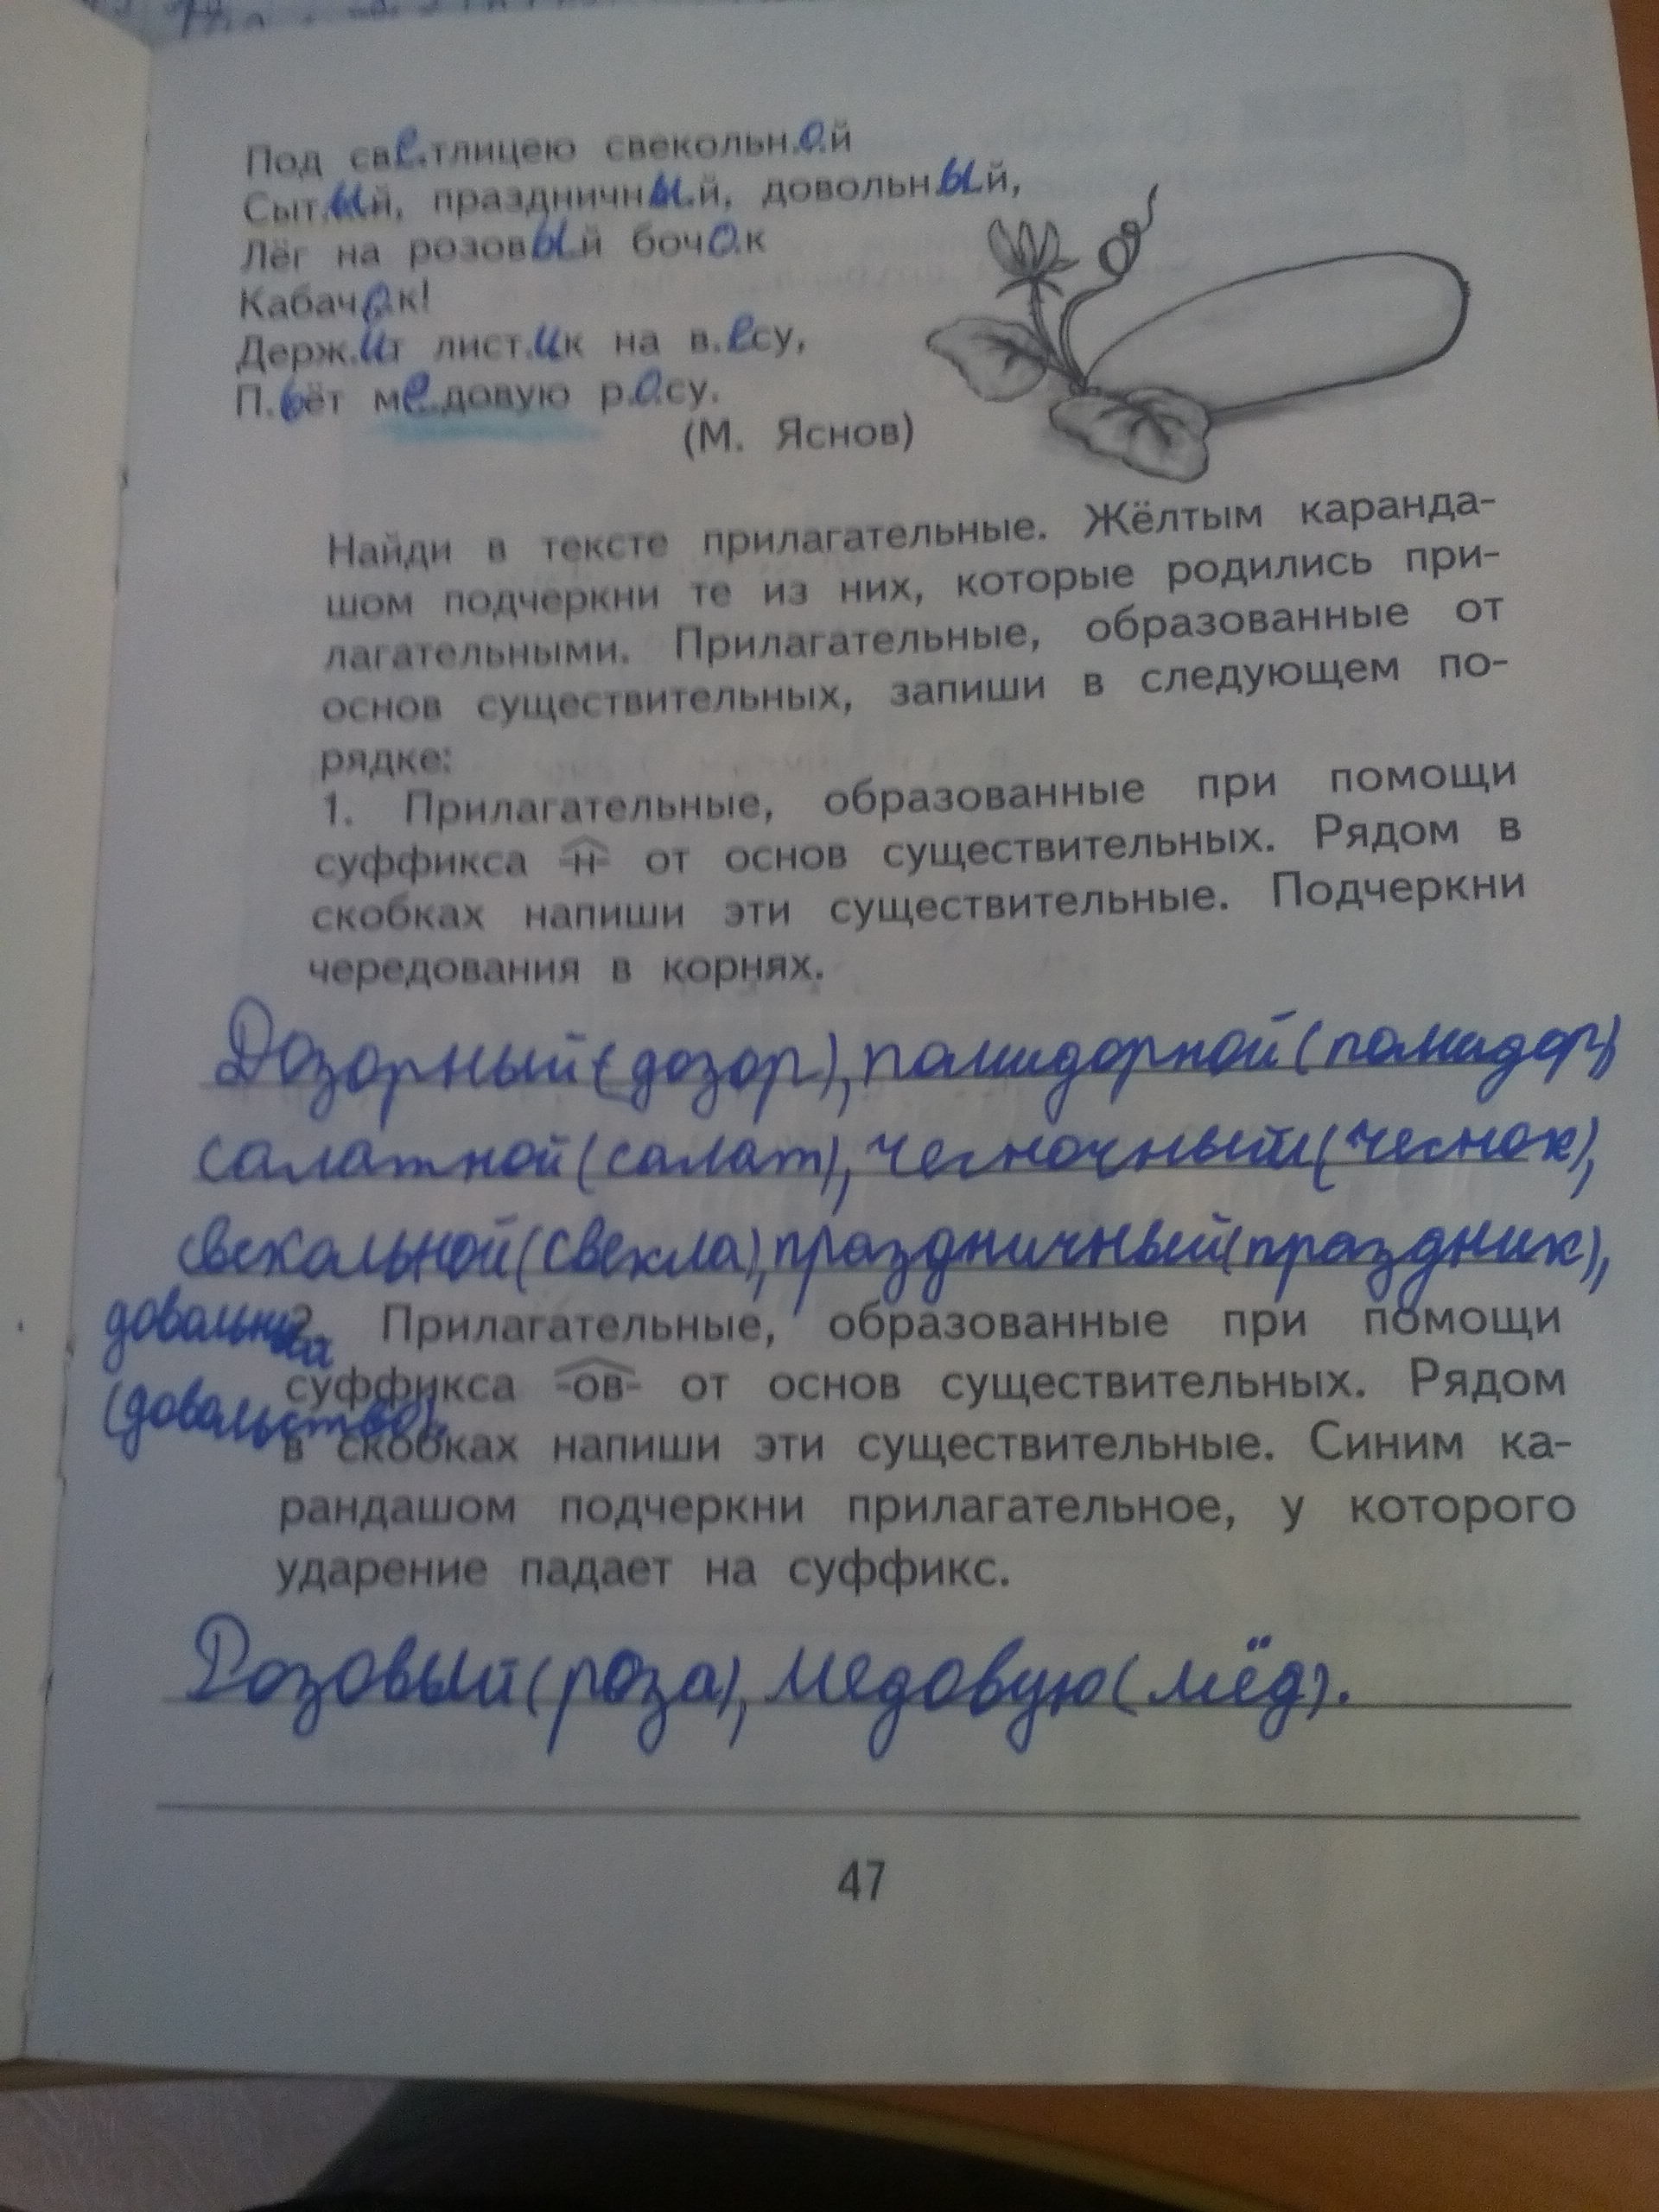 Под светлицею свекольной
Сытый, праздничный, довольный,
Лёг на розовый бочок
Кабачок!
Держит листик на весу,
Пьёт медовую росу.
(М. Яснов)
Найди в тексте прилагательные. Жёлтым каранда-
шом подчеркни те из них, которые родились при-
лагательными. Прилагательные, образованные от
основ существительных, запиши в следующем по-
рядке:
1. Прилагательные, образованные при помощи
суффикса -н- от основ существительных. Рядом в
скобках напиши эти существительные. Подчеркни
чередования в корнях.
Дозорный (дозор), помидорной (помидор)
салатной (салат), чесночный (чеснок),
свекольной (свекла), праздничный (праздник),
2. Прилагательные, образованные при помощи
суффикса -ов- от основ существительных. Рядом
(довольство).
в скобках напиши эти существительные. Синим ка-
рандашом подчеркни прилагательное, у которого
ударение падает на суффикс.
Розовый (роза), медовую (мёд).
47